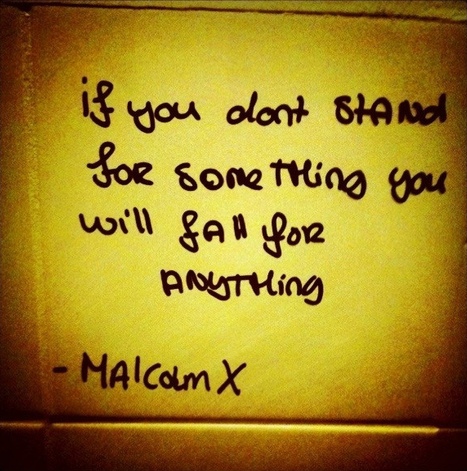 if you dont STAND
foR someTHing you
will fAll foR
ANYTHing
- MAlcolm X